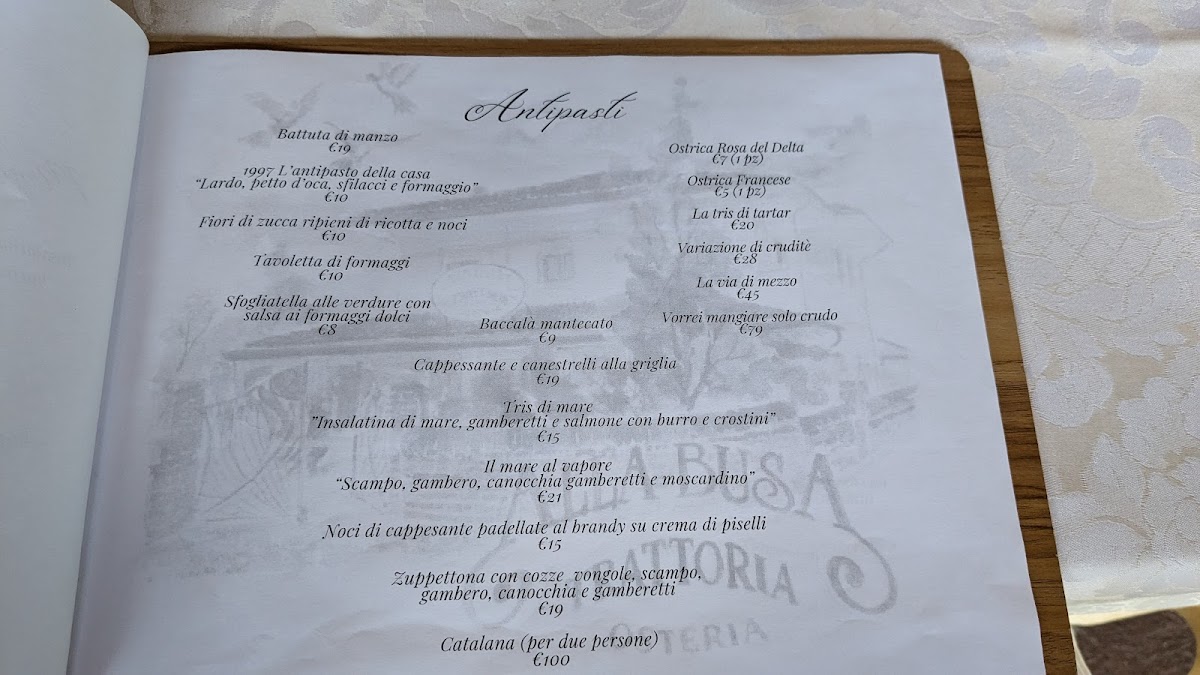 Antipasti
Battuta di manzo
€19
1997 L'antipasto della casa
"Lardo, petto d'oca, sfilacci e formaggio"
€10
Fiori di zucca ripieni di ricotta e noci
€10
Tavoletta di formaggi
€10
Sfogliatella alle verdure con
salsa ai formaggi dolci
€8
Ostrica Rosa del Delta
€7 (1 pz)
Ostrica Francese
€5 (1 pz)
La tris di tartar
€20
Variazione di cruditè
€28
La via di mezzo
€45
Vorrei mangiare solo crudo
€79
Baccalà mantecato
€9
Cappessante e canestrelli alla griglia
€19
Tris di mare
"Insalatina di mare, gamberetti e salmone con burro e crostini"
€15
Il mare al vapore
"Scampo, gambero, canocchia gamberetti e moscardino"
€21
Noci di cappesante padellate al brandy su crema di piselli
€15
Zuppettona con cozze vongole, scampo,
gambero, canocchia e gamberetti
€19
Catalana (per due persone)
€100
ALLA BUSA
TRATTORIA
OSTERIA